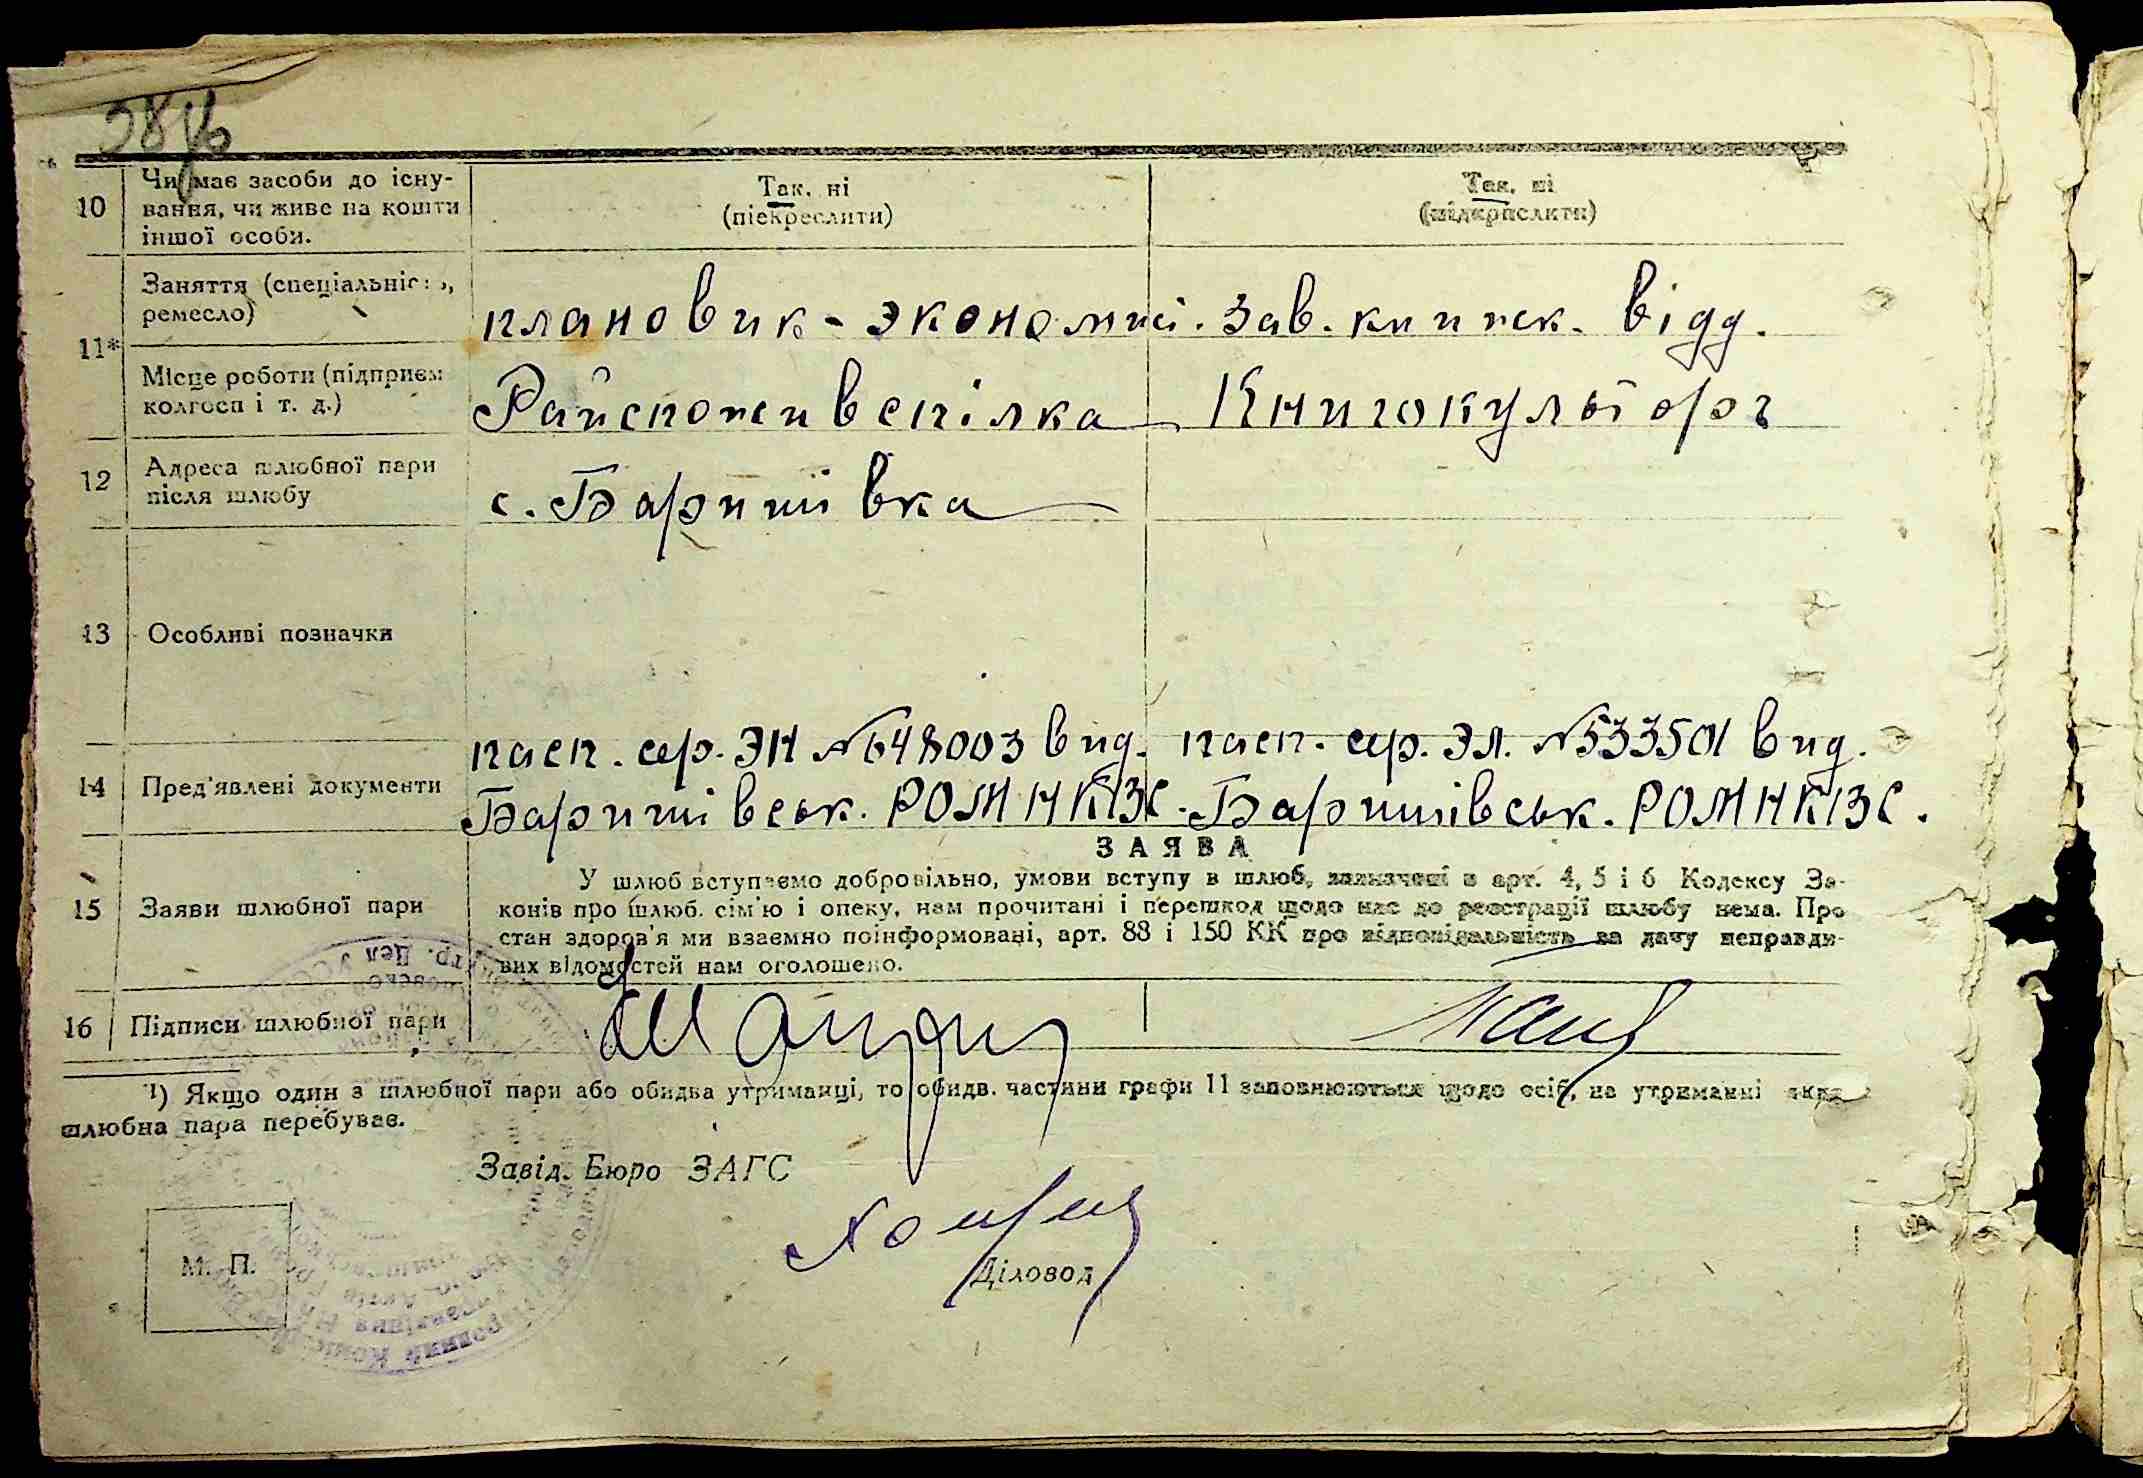 10 Чи має засоби до існу-
вання, чи живе на кошти
іншої особи.
Так, ні
(піекреслити)
Так, ні
(підкреслити)
11* Заняття (спеціальність,
ремесло)
плановик-экономіс. Зав. книжк. відд.
Місце роботи (підприєм
колгосп і т. д.)
Райспоживспілка Книгокультторг
12 Адреса шлюбної пари
після шлюбу
с. Баришівка
13 Особливі позначки
14 Пред'явлені документи
пасп. сер. ЭН №648003 вид. пасп. сер. Эл. №533501 вид.
Баришівськ. РОМ НКВС. Баришівськ. РОМ НКВС.
ЗАЯВА
15 Заяви шлюбної пари
У шлюб вступаємо добровільно, умови вступу в шлюб, зазначені в арт. 4, 5 і 6 Кодексу За-
конів про шлюб. сім'ю і опеку, нам прочитані і перешкод щодо нас до реєстрації шлюбу нема. Про
стан здоров'я ми взаємно поінформовані, арт. 88 і 150 КК про відповідальність за дачу неправди-
вих відомостей нам оголошено.
16 Підписи шлюбної пари
¹) Якщо один з шлюбної пари або обидва утриманці, то обидв. частини графи 11 заповнюються щодо осіб, на утриманні яких
шлюбна пара перебуває.
Завід. Бюро ЗАГС
М. П.
Діловод